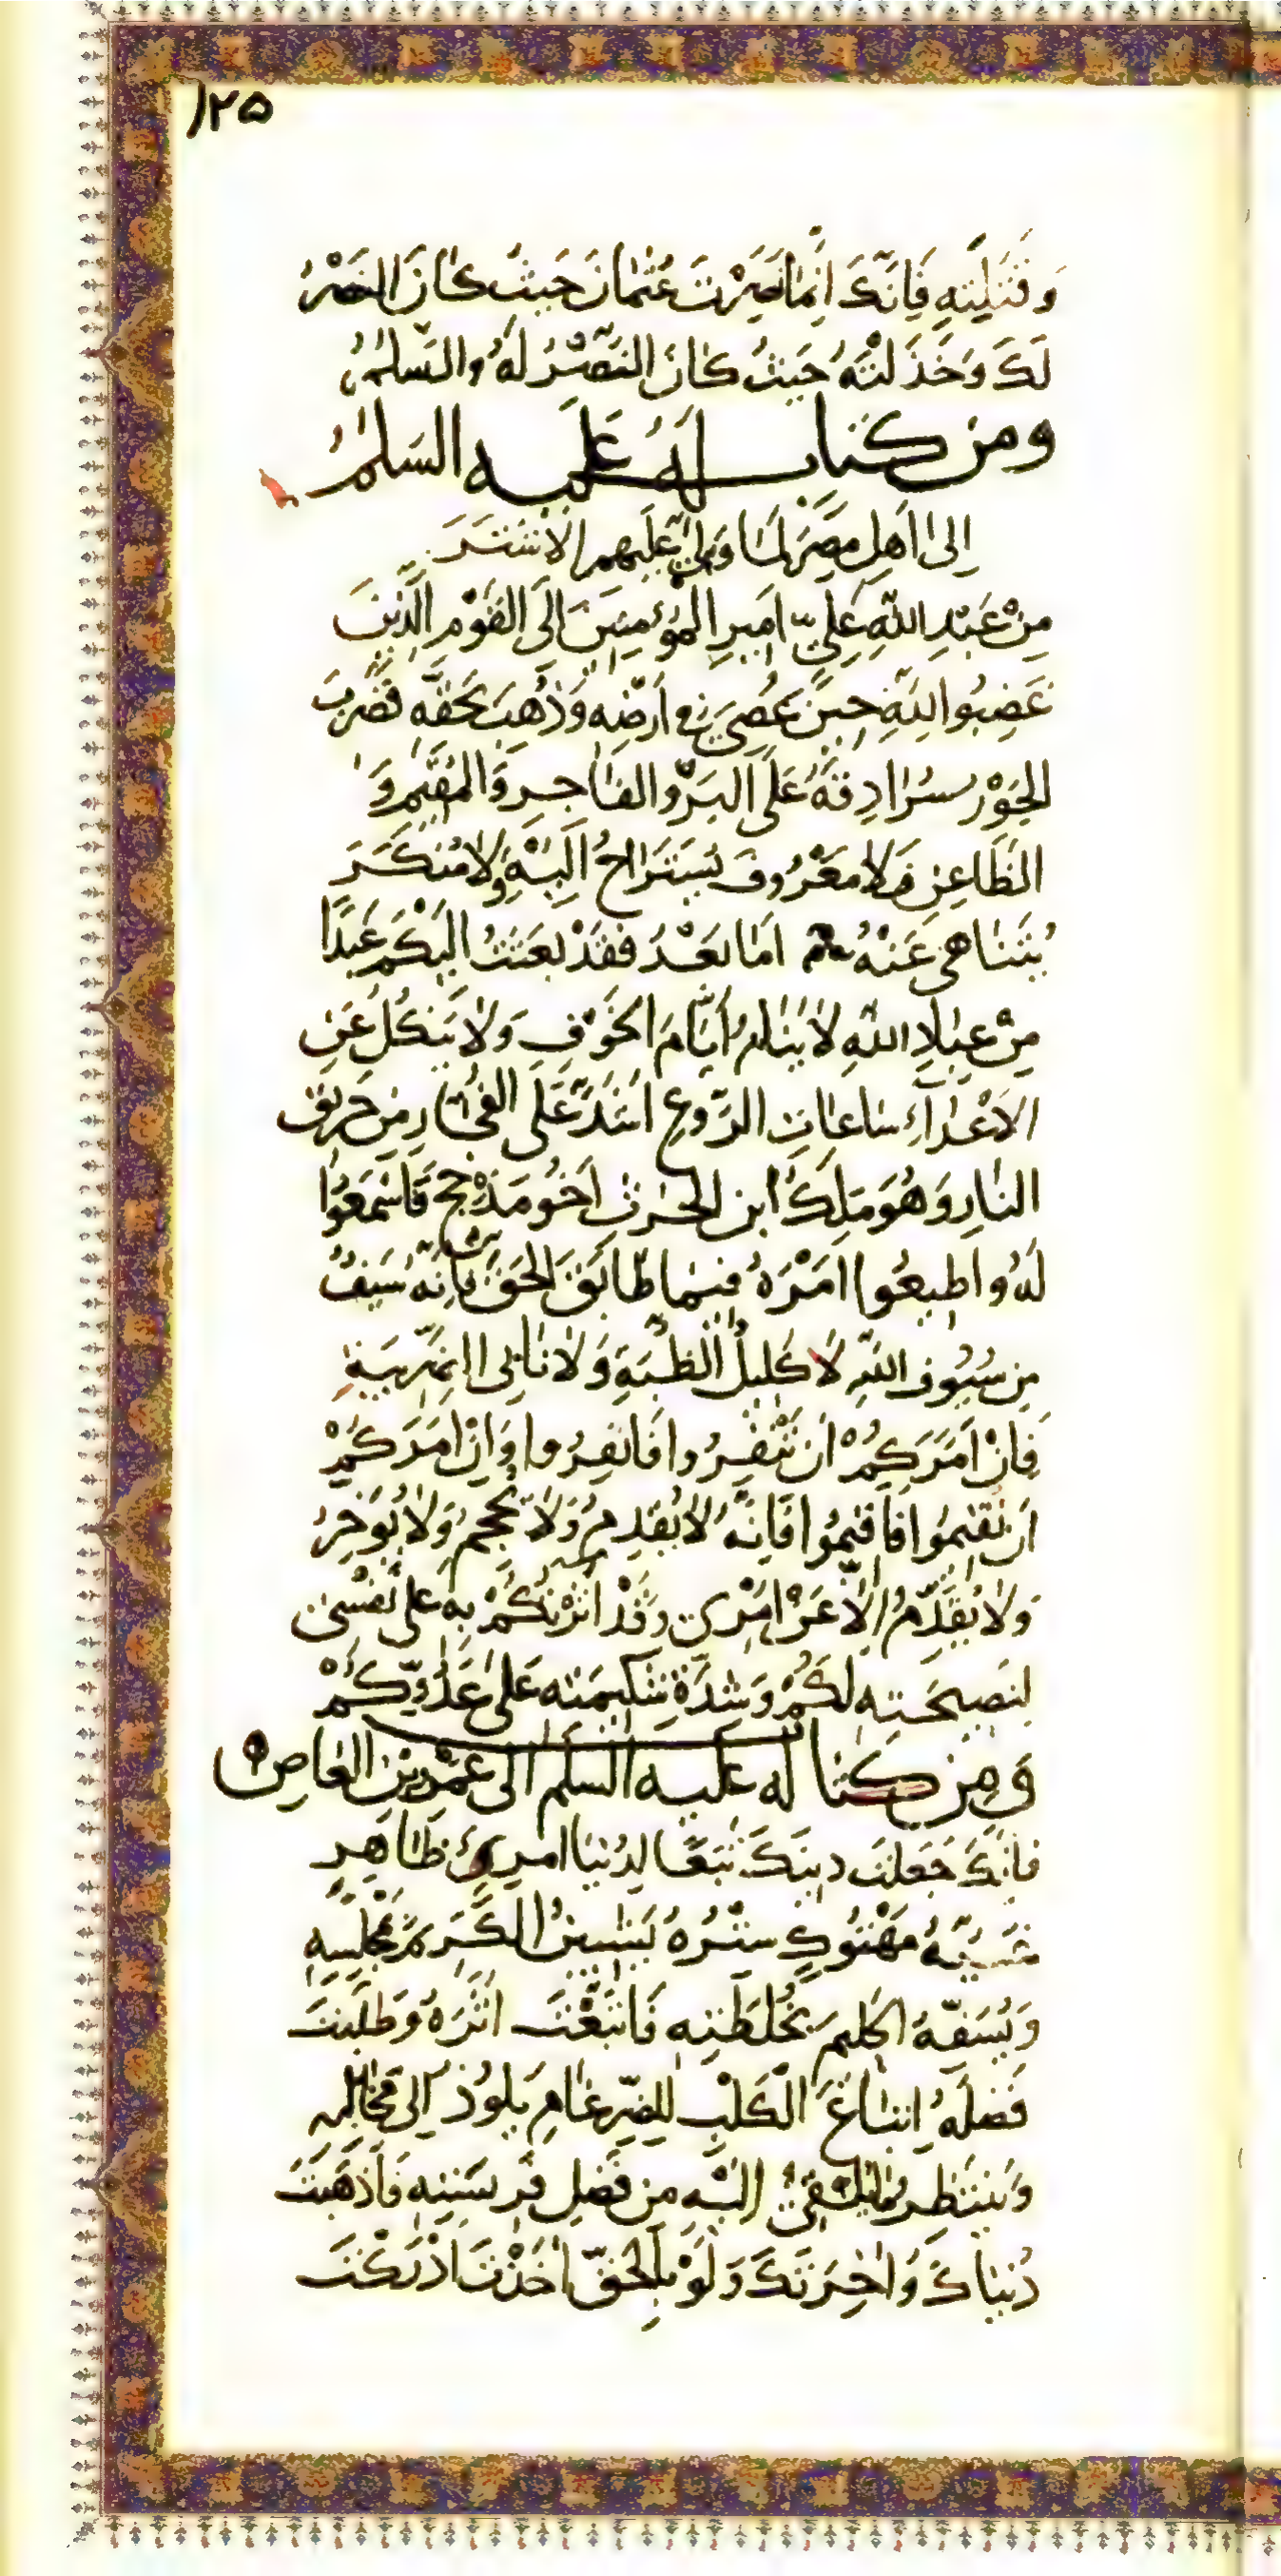 ۱۲۵
وَ قَتَلَتِهِ فَاِنَّكَ اِنَّمَا نَصَرْتَ عُثْمَانَ حَيْثُ كَانَ النَّصْرُ
لَكَ وَ خَذَلْتَهُ حَيْثُ كَانَ النَّصْرُ لَهُ وَالسَّلٰمُ
ومن كتاب لَهُ عَلَيه السَلٰمُ
اِلىٰ اَهلِ مِصْرَ لَمَّا وَلّىٰ عَلَيهم الاشْتَرَ
مِنْ عَبْدِ اللّٰهِ عَلِيٍّ اَمِيرِ المُؤمِنِينَ اِلَى القَوْمِ الَّذِينَ
غَضِبُوا لِلّٰهِ حِينَ عُصِىَ فِى اَرْضِهِ وَ ذُهِبَ بِحَقِّهِ فَضَرَبَ
الجَوْرُ سُرَادِقَهُ عَلَى البَرِّ وَالفَاجِرِ وَالمُقِيمِ وَ
الظَاعِنِ فَلا مَعْرُوفَ يُسْتَرَاحُ اِلَيْهِ وَلا مُنكَرَ
يُتَنَاهىٰ عَنْهُ امَا بَعْدُ فَقَدْ بَعَثْتُ اِلَيْكُم عَبْدًا
مِنْ عِبَادِ اللّٰهِ لا يَنَامُ اَيَّامَ الخَوْفِ وَلا يَنكُلُ عَنِ
الاَعْدَآءِ سَاعَاتِ الرَّوعِ اَشَدَّ عَلَى الفُجَّارِ مِن حَرِيقِ
النَّارِ وَهُوَ مَلِكُ ابن الحٰرثِ اَخُو مَذْحِج فَاسْمَعُوا
لَهُ و اَطِيعُوا امْرَهُ فِيمَا طَابَقَ الحَقَّ فَاِنَّهُ سَيفٌ
مِن سُيُوفِ اللّٰهِ لا كَلِيلُ الظُّبَةِ وَلا نَابِى الضَّرِيبَةِ
فَاِنْ اَمَرَكُمْ اَن تَنْفِرُوا فَانفِرُوا وَاِنْ اَمَرَكُمْ
اَن تُقِيمُوا فَاَقِيمُوا فَاِنَّهُ لا يُقدِمُ وَلا يُحجِمُ وَلا يُؤَخِّرُ
وَلا يُقَدِّمُ اِلاّ عَنْ اَمْرِى وَقَدْ اٰثَرْتُكُمْ بِهِ عَلىٰ نَفْسِى
لِنَصِيحَتِهِ لَكُمْ وَشِدَةِ شَكِيمَتِه عَلىٰ عَدُوِّكُمْ
وَ مِنْ كِتَاب لَه عَلَيه السَّلٰم اِلى عَمْرو بن العَاصِ
فَاِنَّكَ جَعَلْتَ دِينَكَ تَبَعًا لِدُنْيَا امْرِئٍ ظَاهِرٍ
غَيُّهُ مَهْتُوكٍ سِتْرُهُ يَشِينُ الكَرِيمَ بِمَجْلِسِهِ
وَيُسَفِّهُ الحَلِيمَ بِخُلطَتِهِ فَاتَّبَعْتَ اَثَرَهُ وَطَلَبْتَ
فَضْلَهُ اِتِّبَاعَ الكَلْبِ لِلضِّرغَامِ يَلُوذُ اِلىٰ مَخَالِبِهِ
وَيَنتَظِرُ مَا يُلقىٰ اِلَيْهِ مِن فَضلِ فَرِيسَتِهِ فَاَذْهَبْتَ
دُنيَاكَ وَاٰخِرَتَكَ وَلَوْ بِالحَقِّ اَخَذْتَ اَدْرَكْتَ